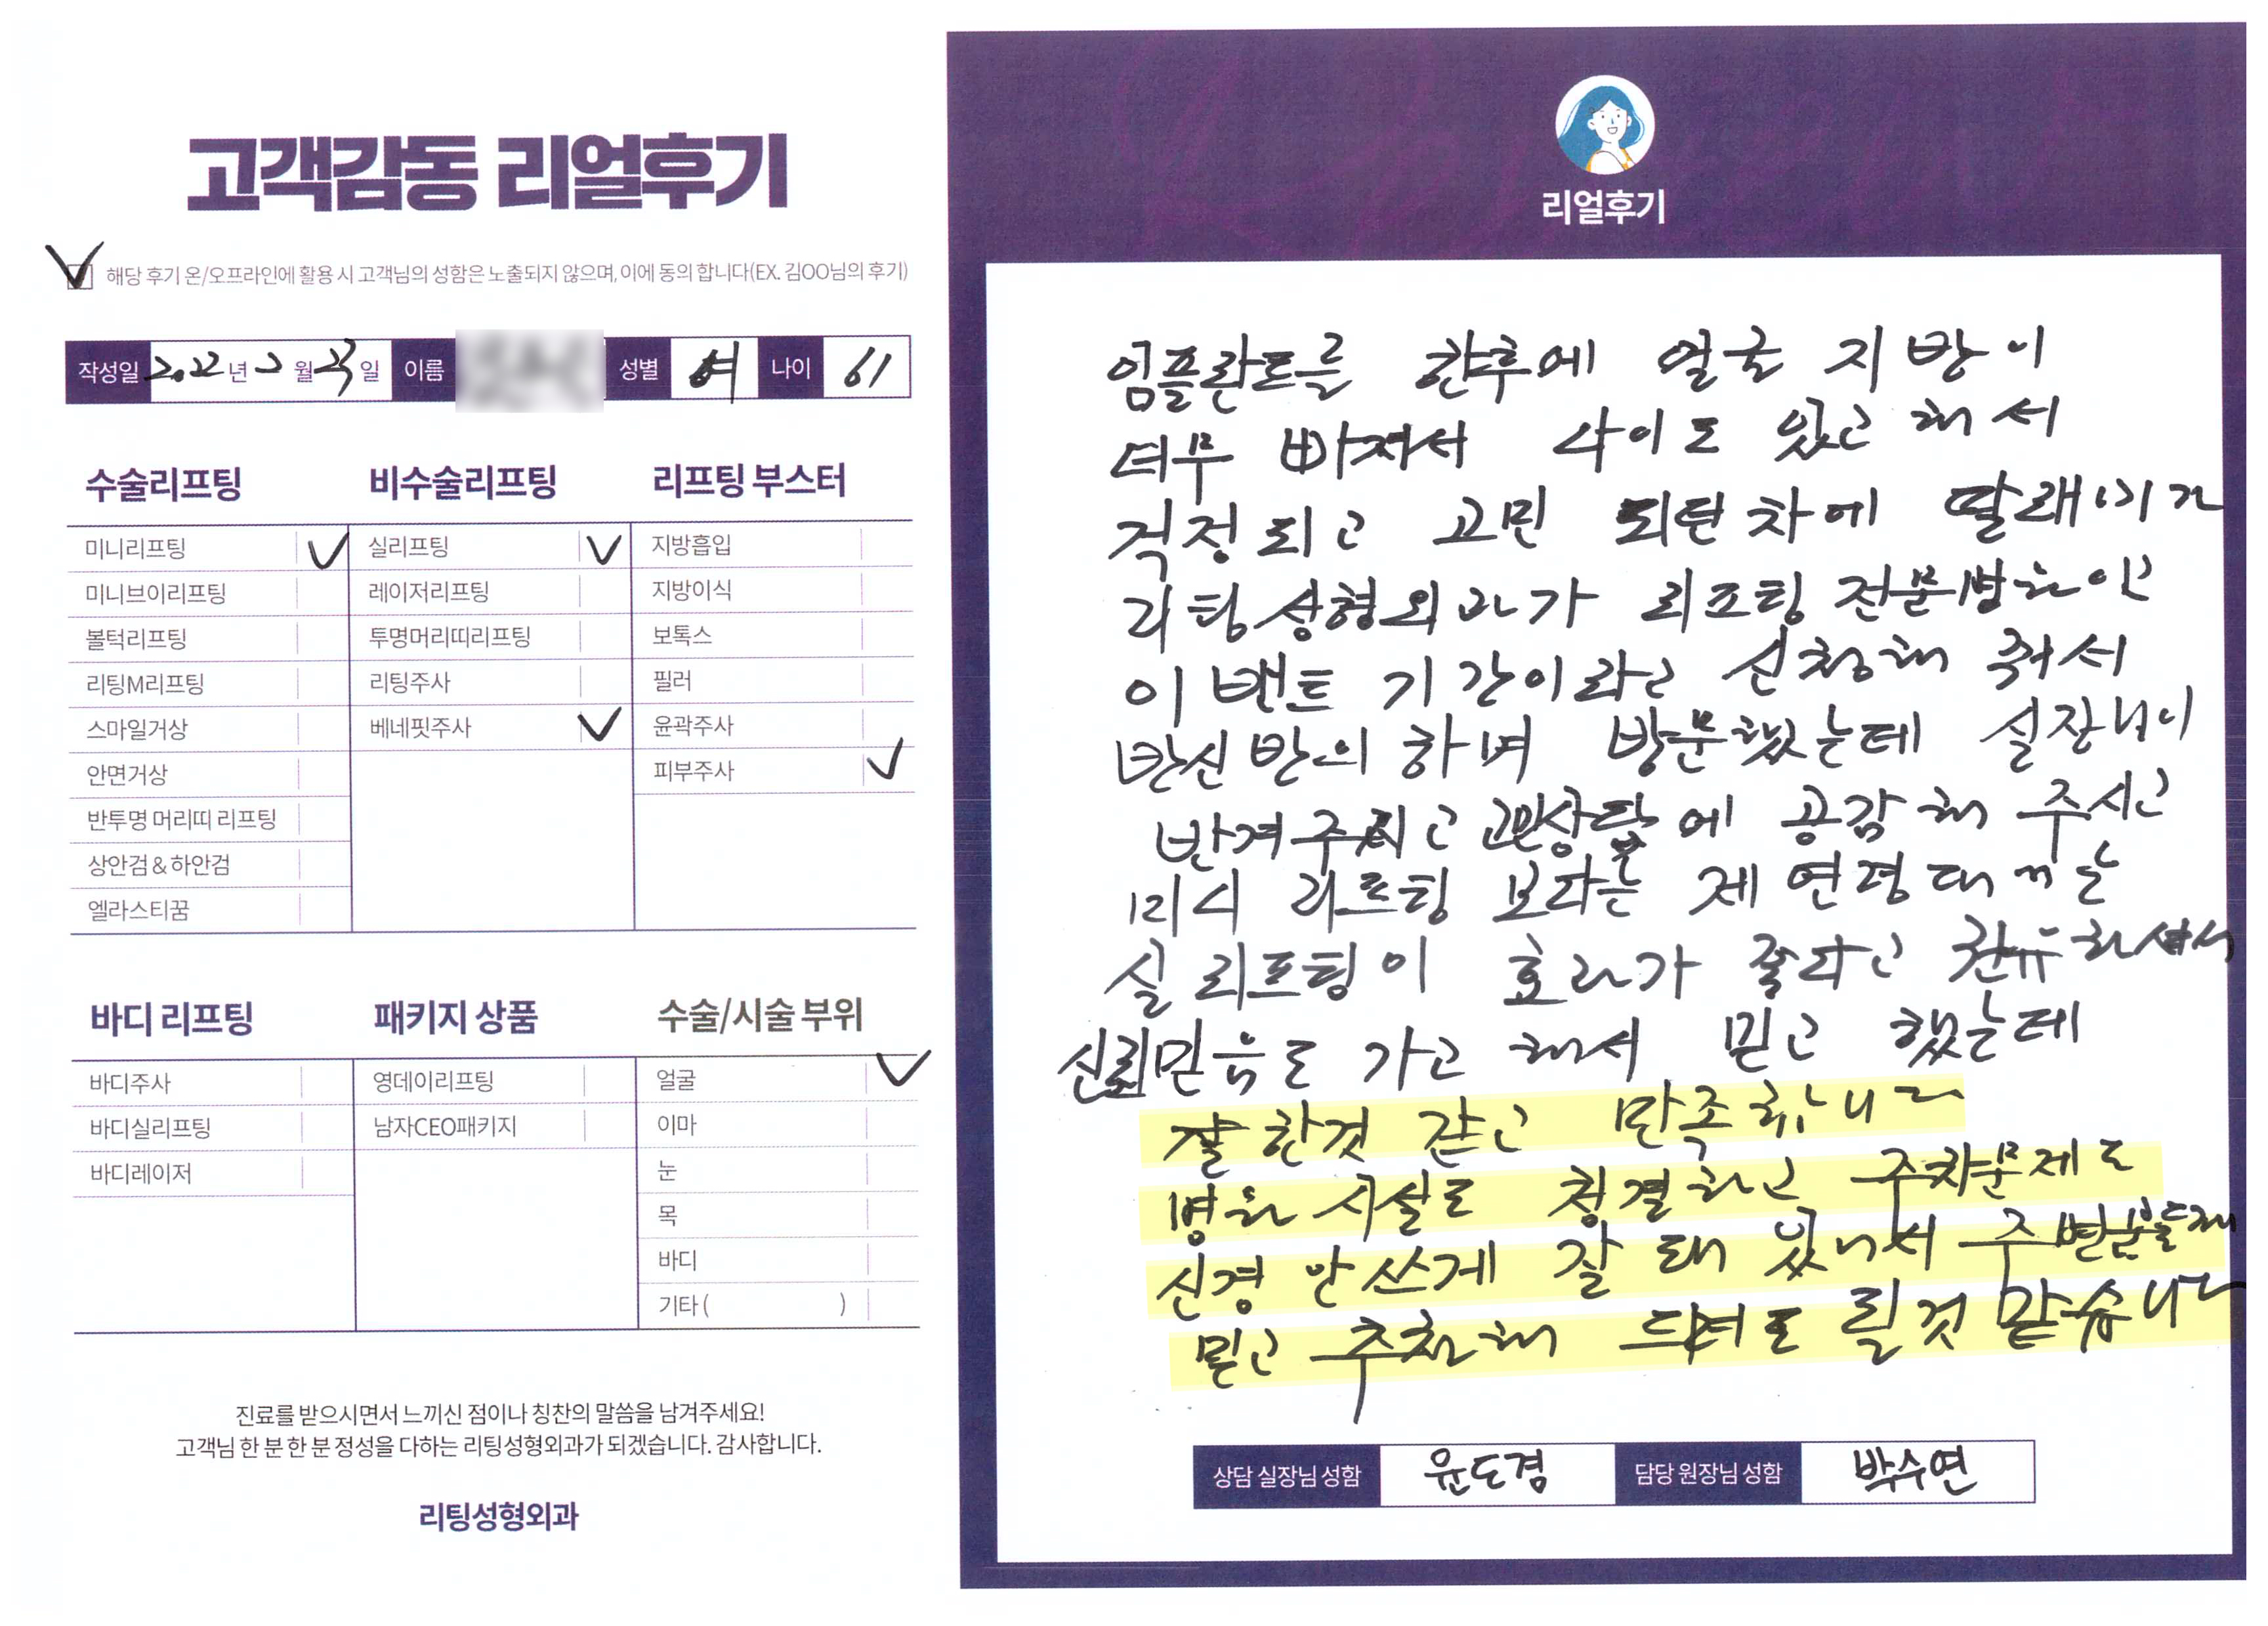 고객감동 리얼후기
해당 후기 온/오프라인에 활용 시 고객님의 성함은 노출되지 않으며, 이에 동의 합니다(EX. 김OO님의 후기)
작성일 2022년 2월 23일 이름 성별 여 나이 61
수술리프팅
미니리프팅
미니브이리프팅
볼턱리프팅
리팅M리프팅
스마일거상
안면거상
반투명 머리띠 리프팅
상안검&하안검
엘라스티꿈
비수술리프팅
실리프팅
레이저리프팅
투명머리띠리프팅
리팅주사
베네핏주사
리프팅 부스터
지방흡입
지방이식
보톡스
필러
윤곽주사
피부주사
바디 리프팅
바디주사
바디실리프팅
바디레이저
패키지 상품
영데이리프팅
남자CEO패키지
수술/시술 부위
얼굴
이마
눈
목
바디
기타( )
진료를 받으시면서 느끼신 점이나 칭찬의 말씀을 남겨주세요!
고객님 한 분 한 분 정성을 다하는 리팅성형외과가 되겠습니다. 감사합니다.
리팅성형외과
리얼후기
임플란트를 한후에 얼굴 지방이
너무 빠져서 나이도 있고 해서
걱정되고 고민 되던차에 딸래미가
리팅성형외과가 리프팅 전문병원이고
이밴트 기간이라고 신청해 줘서
반신반의 하며 방문했는데 실장님이
반겨주시고 고민상담에 공감해 주시고
미니 리프팅 보다는 제 연령대에는
실리프팅이 효과가 좋다고 권유하셔서
신뢰믿음도 가고 해서 믿고 했는데
잘 한것 같고 만족합니다
병원 시설도 청결하고 주차문제도
신경 안쓰게 잘 돼 있어서 주변분들께
믿고 추천해 드려도 될것 같습니다
상담 실장님 성함 윤도경 담당 원장님 성함 박수연